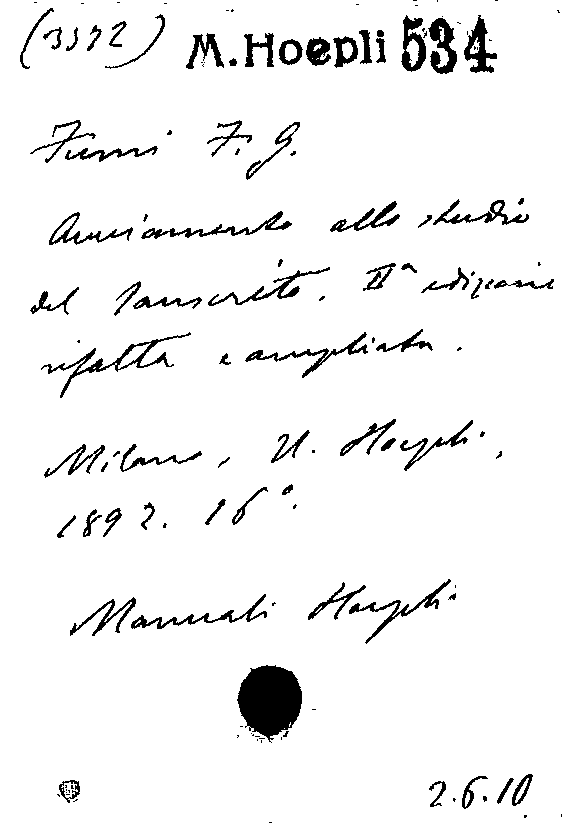 (3372) M. Hoepli 534
Fumi F. G.
Avviamento allo studio
del sanscrito. IIª edizione
rifatta e ampliata.
Milano, U. Hoepli,
1892. 16°.
Manuali Hoepli
2.6.10